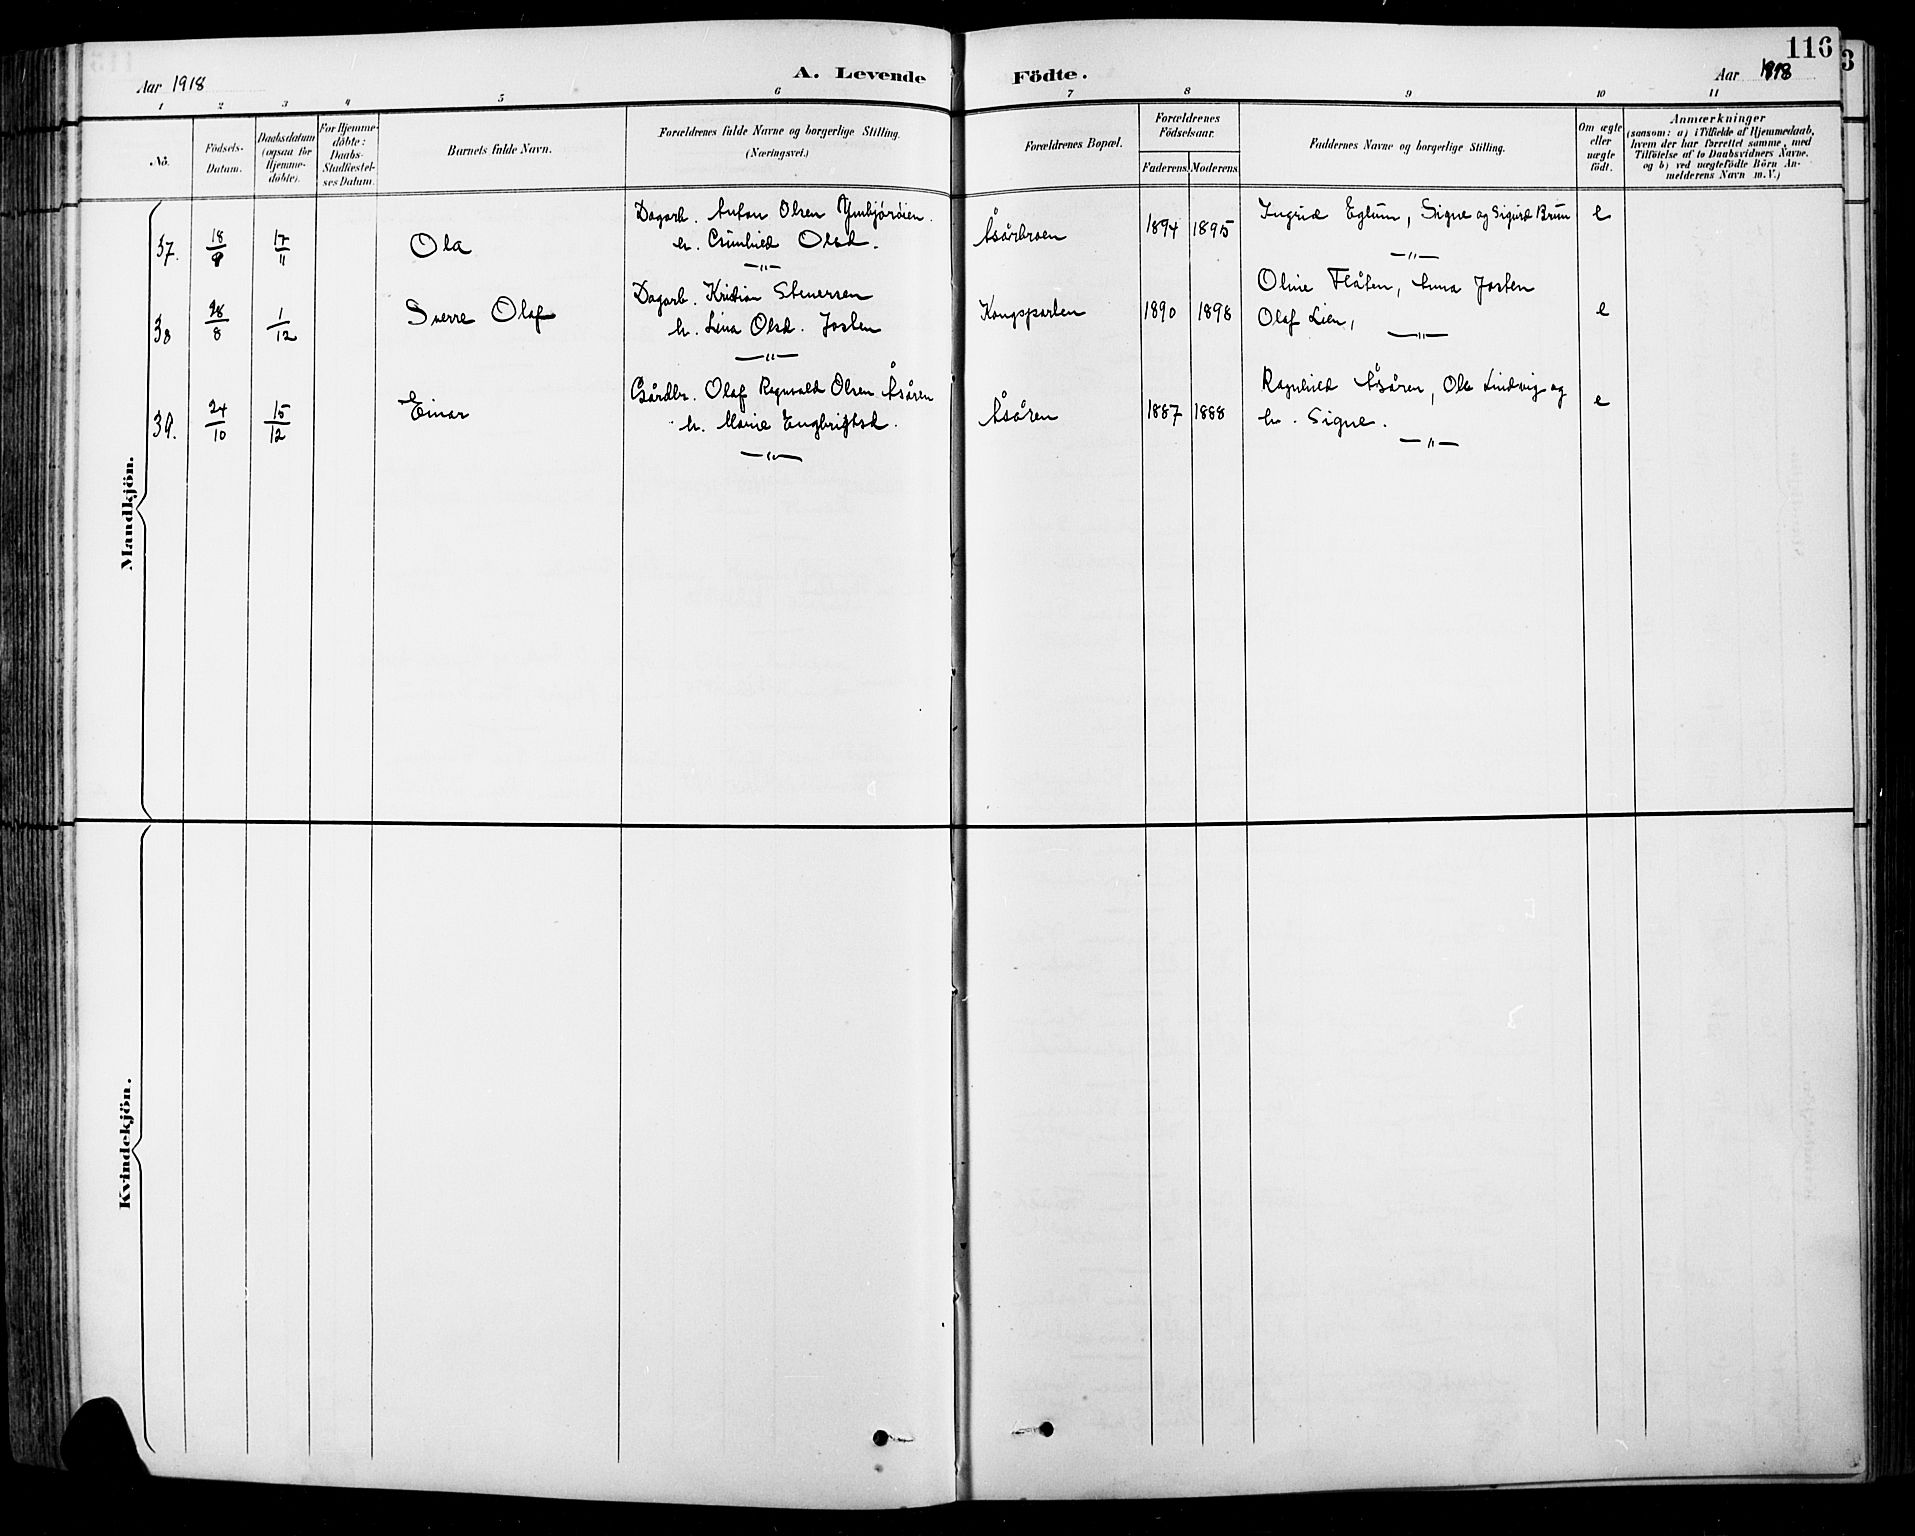 Aar 1918
A. Levende Födte.
116
Aar 1918
1 2 3 4 5 6 7 8 9 10 11
No.
Födsels-Datum.
Daabsdatum (ogsaa for Hjemme-döbte).
For Hjemme-döbte: Daabs-Stadfæstel-ses Datum.
Barnets fulde Navn.
Forældrenes fulde Navne og borgerlige Stilling. (Næringsvei.)
Forældrenes Bopæl.
Forældrenes Födselsaar.
Faderens. Moderens.
Faddernes Navne og borgerlige Stilling.
Om ægte eller uægte födt.
Anmærkninger
(saasom: a) i Tilfælde af Hjemmedaab, hvem der har forrettet samme, med Tilföielse af to Daabsvidners Navne, og b) ved uegtefödte Börn An-melderens Navn m. V.)
Mandkjön.
37. 18/9 17/11 Ola
Dagarb. Anton Olsen
h. Gunhild Olsd.
—"—
Åsårbroen 1894 1895
Ingrid Eglum, Signe og Sigurd Brun
—"—
e
38 28/8 1/12 Sverre Olaf
Dagarb. Kristian Stenersen
h. Lina Olsd. Josten
—"—
Kongsparten 1890 1898
Oline Flåten, Anna Josten
Olaf Lien, —"—
e
39. 24/10 15/12 Einar
Gårdbr. Olaf Ragnvald Olsen Åsåren
h. Marie Engbrigtsd.
—"—
Åsåren 1887 1888
Ragnhild Åsåren, Ole Lindvig og
h. Signe.
—"—
e
Kvindekjön.